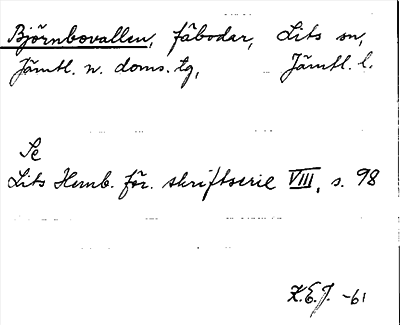 Björnbovallen, fäbodar, Lits sn,
Jämtl. n. doms. tg, Jämtl. l.
Se
Lits Hemb. för. skriftserie VIII, s. 98
K.E.J. -61